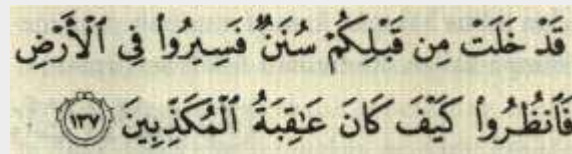 قَدْ خَلَتْ مِن قَبْلِكُمْ سُنَنٌ فَسِيرُوا۟ فِى ٱلْأَرْضِ
فَٱنظُرُوا۟ كَيْفَ كَانَ عَـٰقِبَةُ ٱلْمُكَذِّبِينَ ١٣٧